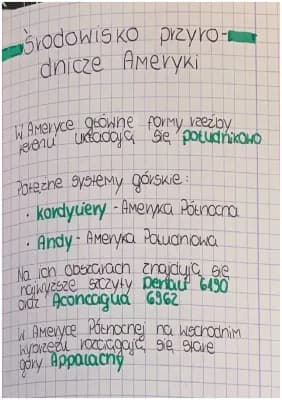 Środowisko przyro-
dnicze Ameryki
W Ameryce główne formy rzeźby
terenu układają się południkowo
Potężne systemy górskie:
• Kordyliery - Ameryka Północna
• Andy - Ameryka Południowa
Na ich obszarach znajdują się
najwyższe szczyty Denali 6190
oraz Aconcagua 6962
W Ameryce Północnej na wschodnim
wybrzeżu rozciągają się stare
góry Appalachy